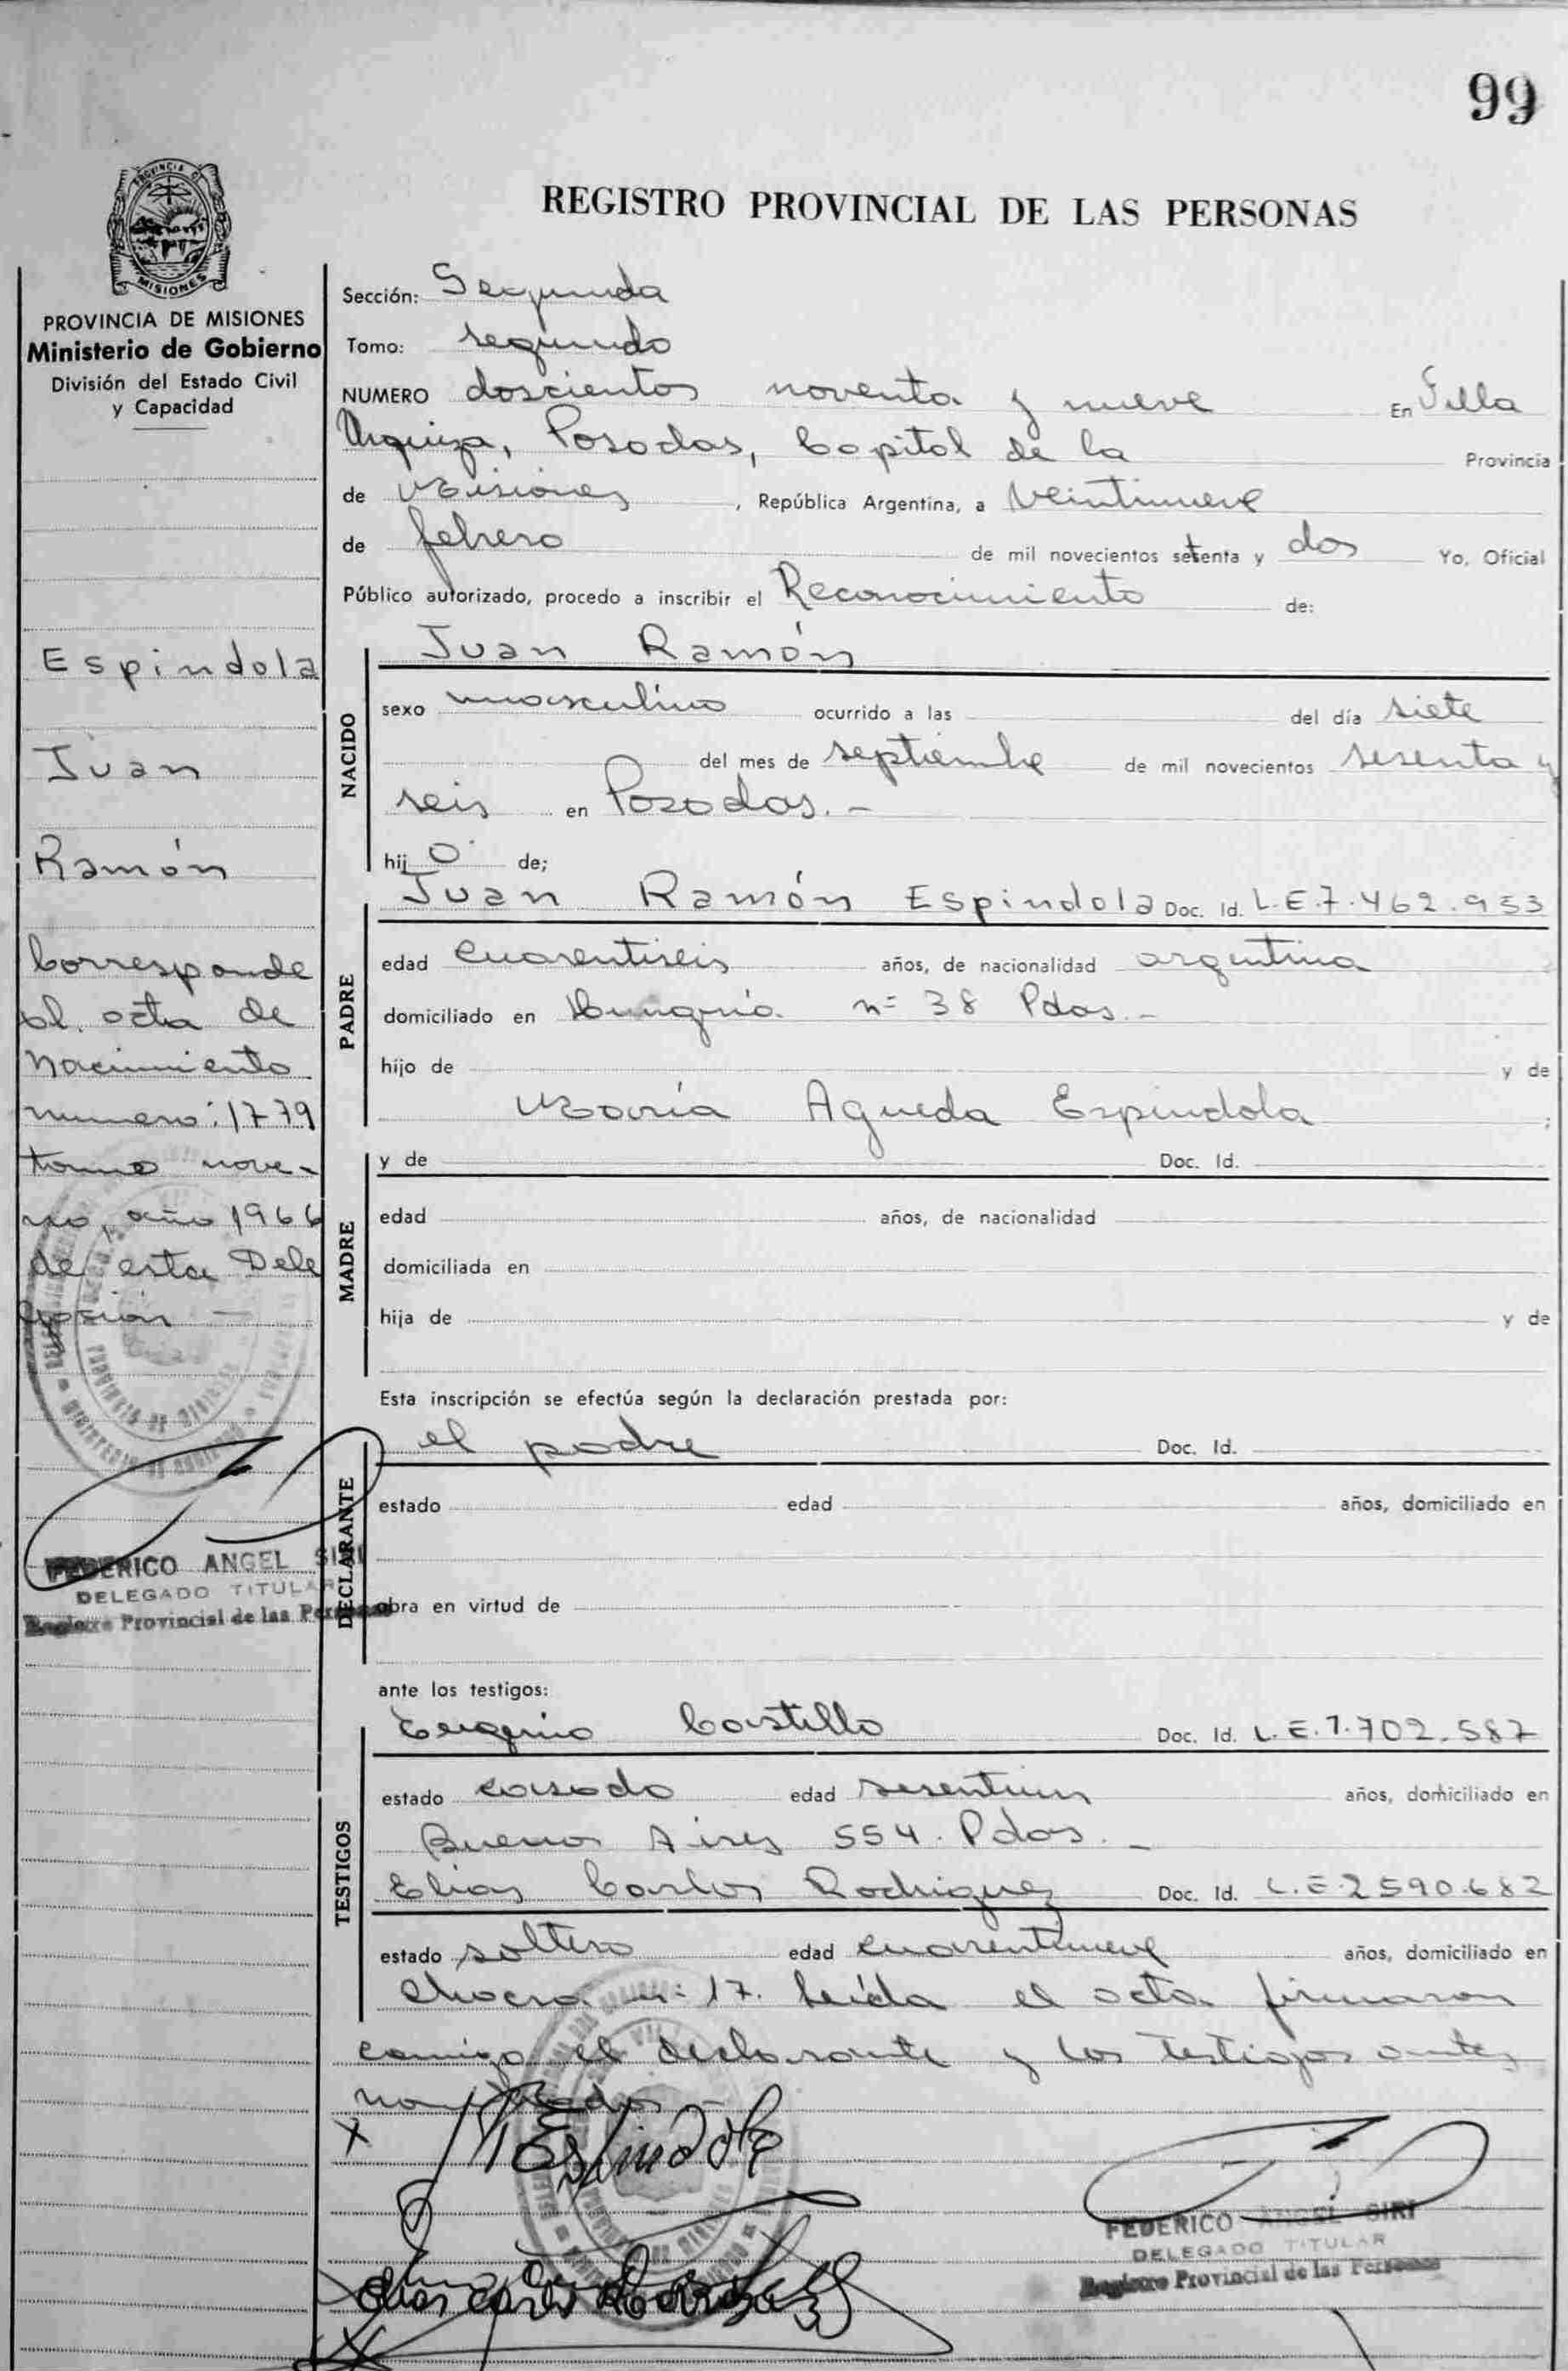 99
PROVINCIA DE
MISIONES
REGISTRO PROVINCIAL DE LAS PERSONAS
PROVINCIA DE MISIONES
Ministerio de Gobierno
División del Estado Civil
y Capacidad
Espindola
Juan
Ramón
Corresponde
al acta de
nacimiento
numero: 1779
tomo nove-
no, año 1966
de esta Dele
gasión
FEDERICO ANGEL SIRI
DELEGADO TITULAR
Registro Provincial de las Personas
Sección: Segunda
Tomo: segundo
NUMERO doscientos noventa y nueve En Villa
Urquiza, Posadas, Capital de la Provincia
de Misiones, República Argentina, a veintinueve
de febrero de mil novecientos setenta y dos Yo, Oficial
Público autorizado, procedo a inscribir el Reconocimiento de:
NACIDO
Juan Ramón
sexo masculino ocurrido a las del día siete
del mes de septiembre de mil novecientos sesenta y
seis en Posadas.-
hijo de;
PADRE
Juan Ramón Espindola Doc. Id. L.E.7.462.953
edad cuarentiseis años, de nacionalidad argentina
domiciliado en Hungría nº 38 Pdas.-
hijo de y de
María Agueda Espindola ;
MADRE
y de Doc. Id.
edad años, de nacionalidad
domiciliada en
hija de y de
Esta inscripción se efectúa según la declaración prestada por:
DECLARANTE
el padre Doc. Id.
estado edad años, domiciliado en
obra en virtud de
ante los testigos:
TESTIGOS
Eugenio Castillo Doc. Id. L.E.1.702.587
estado casado edad sesentiun años, domiciliado en
Buenos Aires 554. Pdas.-
Elias Carlos Rodriguez Doc. Id. L.E.2590.682
estado soltero edad cuarentinueve años, domiciliado en
chacra nº 17. Leída el acta firmaron
conmigo el declarante y los testigos antes
nombrados.-
X Espindola
Elias Carlos Rodriguez
FEDERICO ANGEL SIRI
DELEGADO TITULAR
Registro Provincial de las Personas